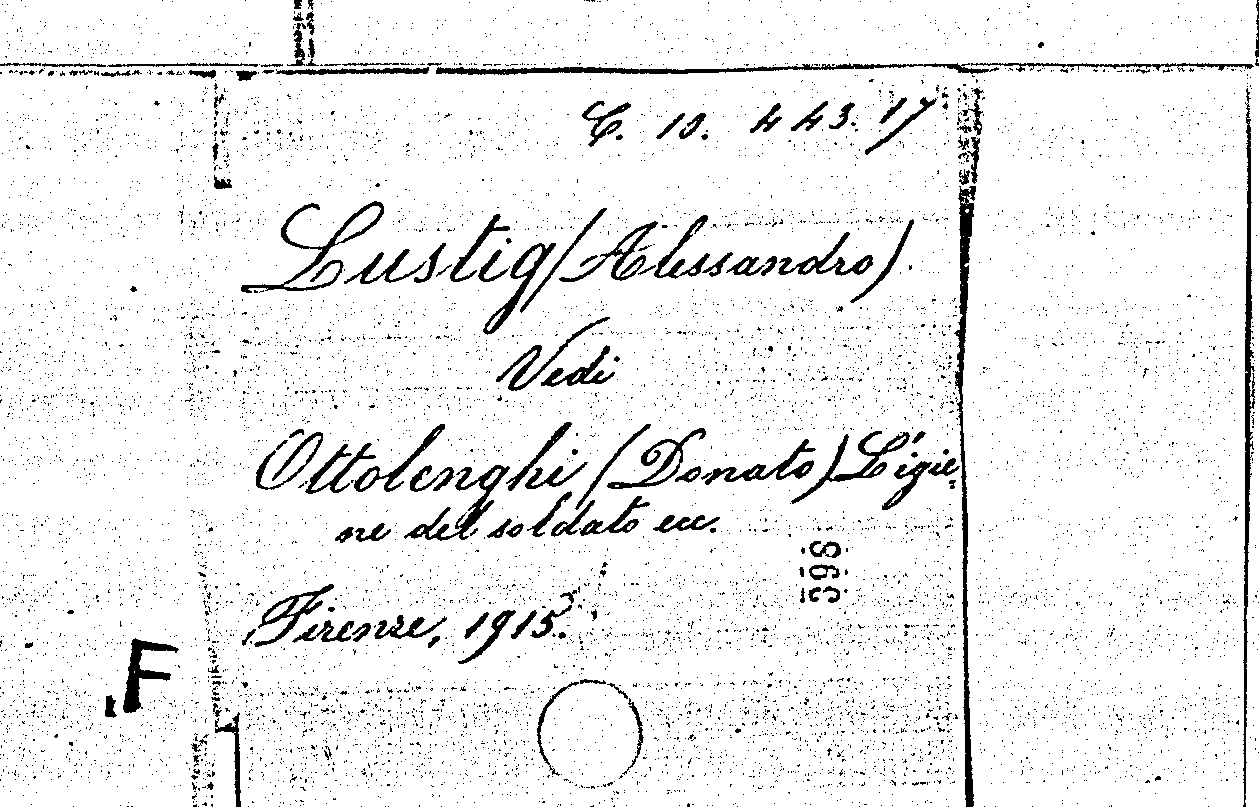 C. 10. 443. 17
Lustig (Alessandro).
Vedi
Ottolenghi (Donato) L'igie
ne del soldato ecc.
398
Firenze, 1915.
F